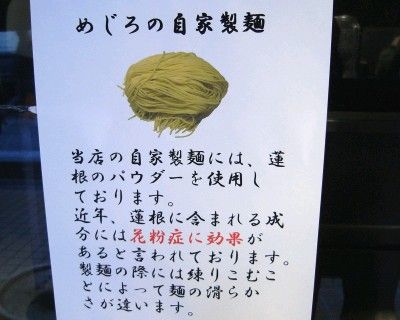 めじろの自家製麺
当店の自家製麺には、蓮
根のパウダーを使用し
ております。
近年、蓮根に含まれる成
分には花粉症に効果が
あると言われております。
製麺の際には練りこむこ
とによって麺の滑らか
さが違います。